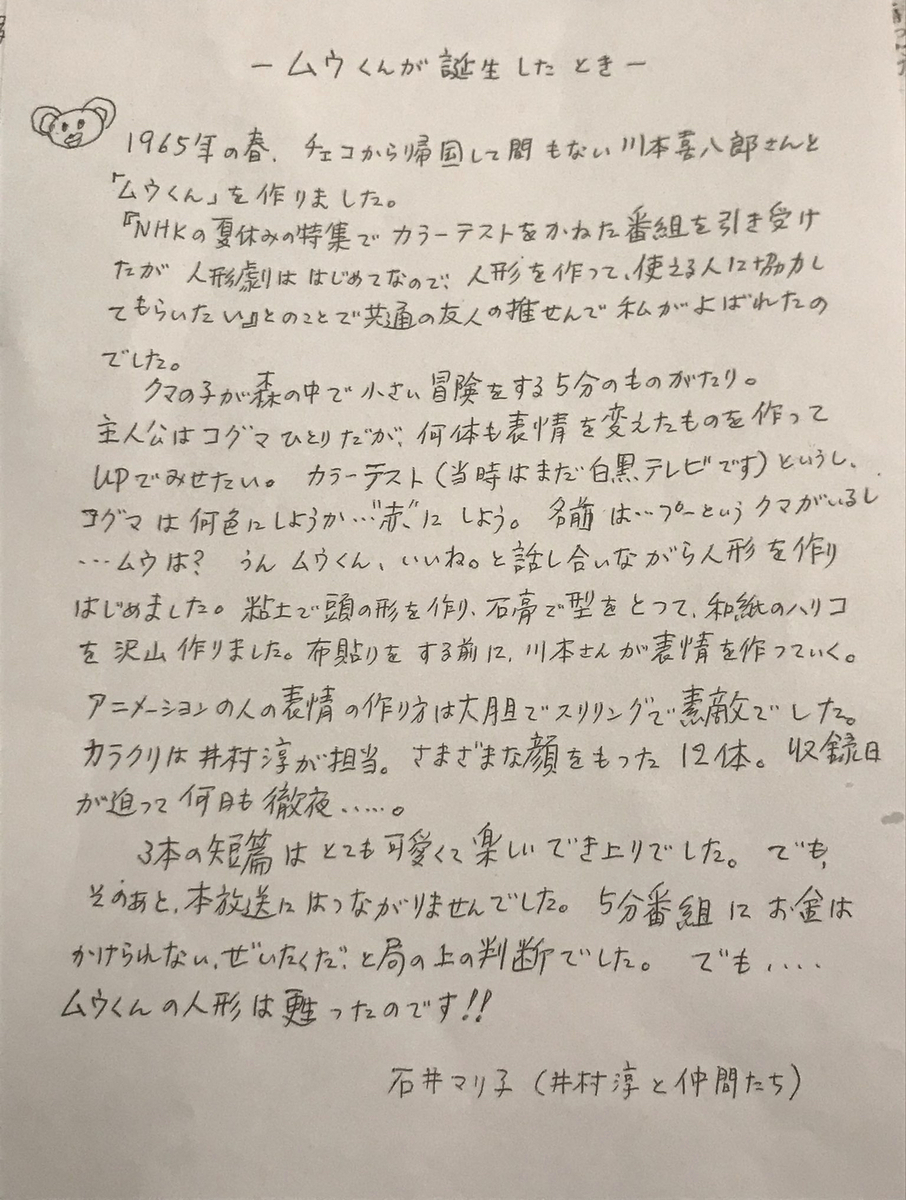 ームウくんが誕生したときー
1965年の春、チェコから帰国して間もない川本喜八郎さんと
「ムウくん」を作りました。
『NHKの夏休みの特集でカラーテストをかねた番組を引き受け
たが人形劇ははじめてなので、人形を作って、使える人に協力し
てもらいたい』とのことで共通の友人の推せんで私がよばれたの
でした。
クマの子が森の中で小さい冒険をする5分のものがたり。
主人公はコグマひとりだが、何体も表情を変えたものを作って
UPでみせたい。カラーテスト(当時はまだ白黒テレビです)というし、
コグマは何色にしようか…"赤"にしよう。名前は…プーというクマがいるし
…ムウは?うんムウくん、いいね。と話し合いながら人形を作り
はじめました。粘土で頭の形を作り、石膏で型をとって、和紙のハリコ
を沢山作りました。布貼りをする前に、川本さんが表情を作っていく。
アニメーションの人の表情の作り方は大胆でスリリングで素敵でした。
カラクリは井村淳が担当。さまざまな顔をもった12体。収録日
が迫って何日も徹夜……。
3本の短篇はとても可愛くて楽しいでき上りでした。でも、
そのあと、本放送にはつながりませんでした。5分番組にお金は
かけられない、ぜいたくだ、と局の上の判断でした。でも、…
ムウくんの人形は甦ったのです!!
石井マリ子(井村淳と仲間たち)